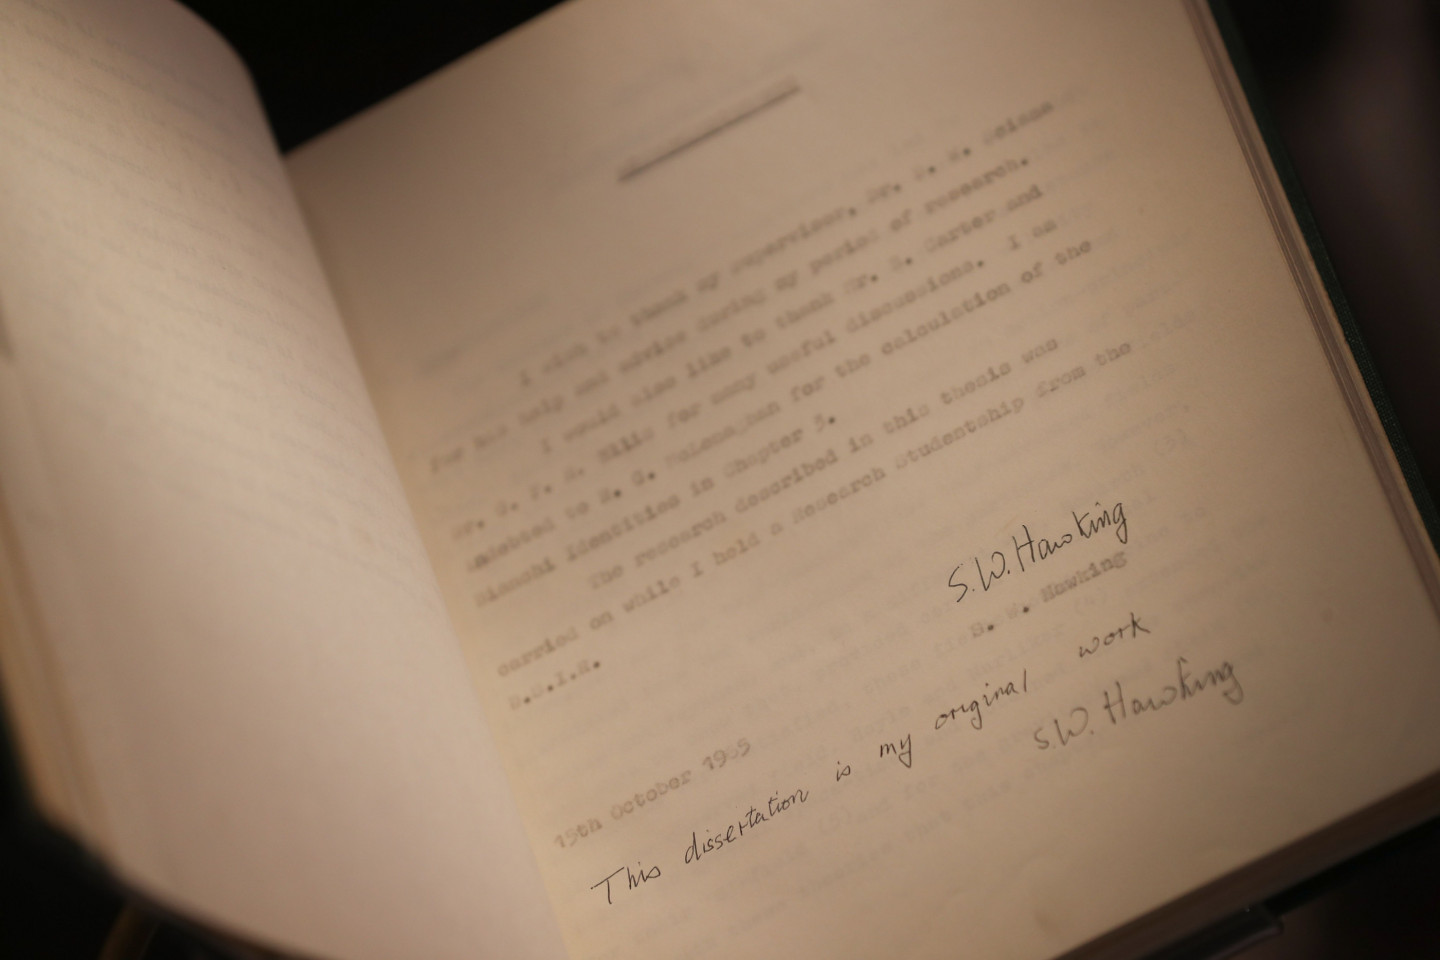 I wish to thank my supervisor, Dr. D. W. Sciama
for his help and advice during my period of research.
I would also like to thank Mr. B. Carter and
Mr. G. F. R. Ellis for many useful discussions. I am
indebted to R. G. McLenaghan for the calculation of the
Bianchi identities in Chapter 3.
The research described in this thesis was
carried on while I held a Research Studentship from the
D.S.I.R.
S.W. Hawking
S. W. Hawking
15th October 1965
This dissertation is my original work
S.W. Hawking